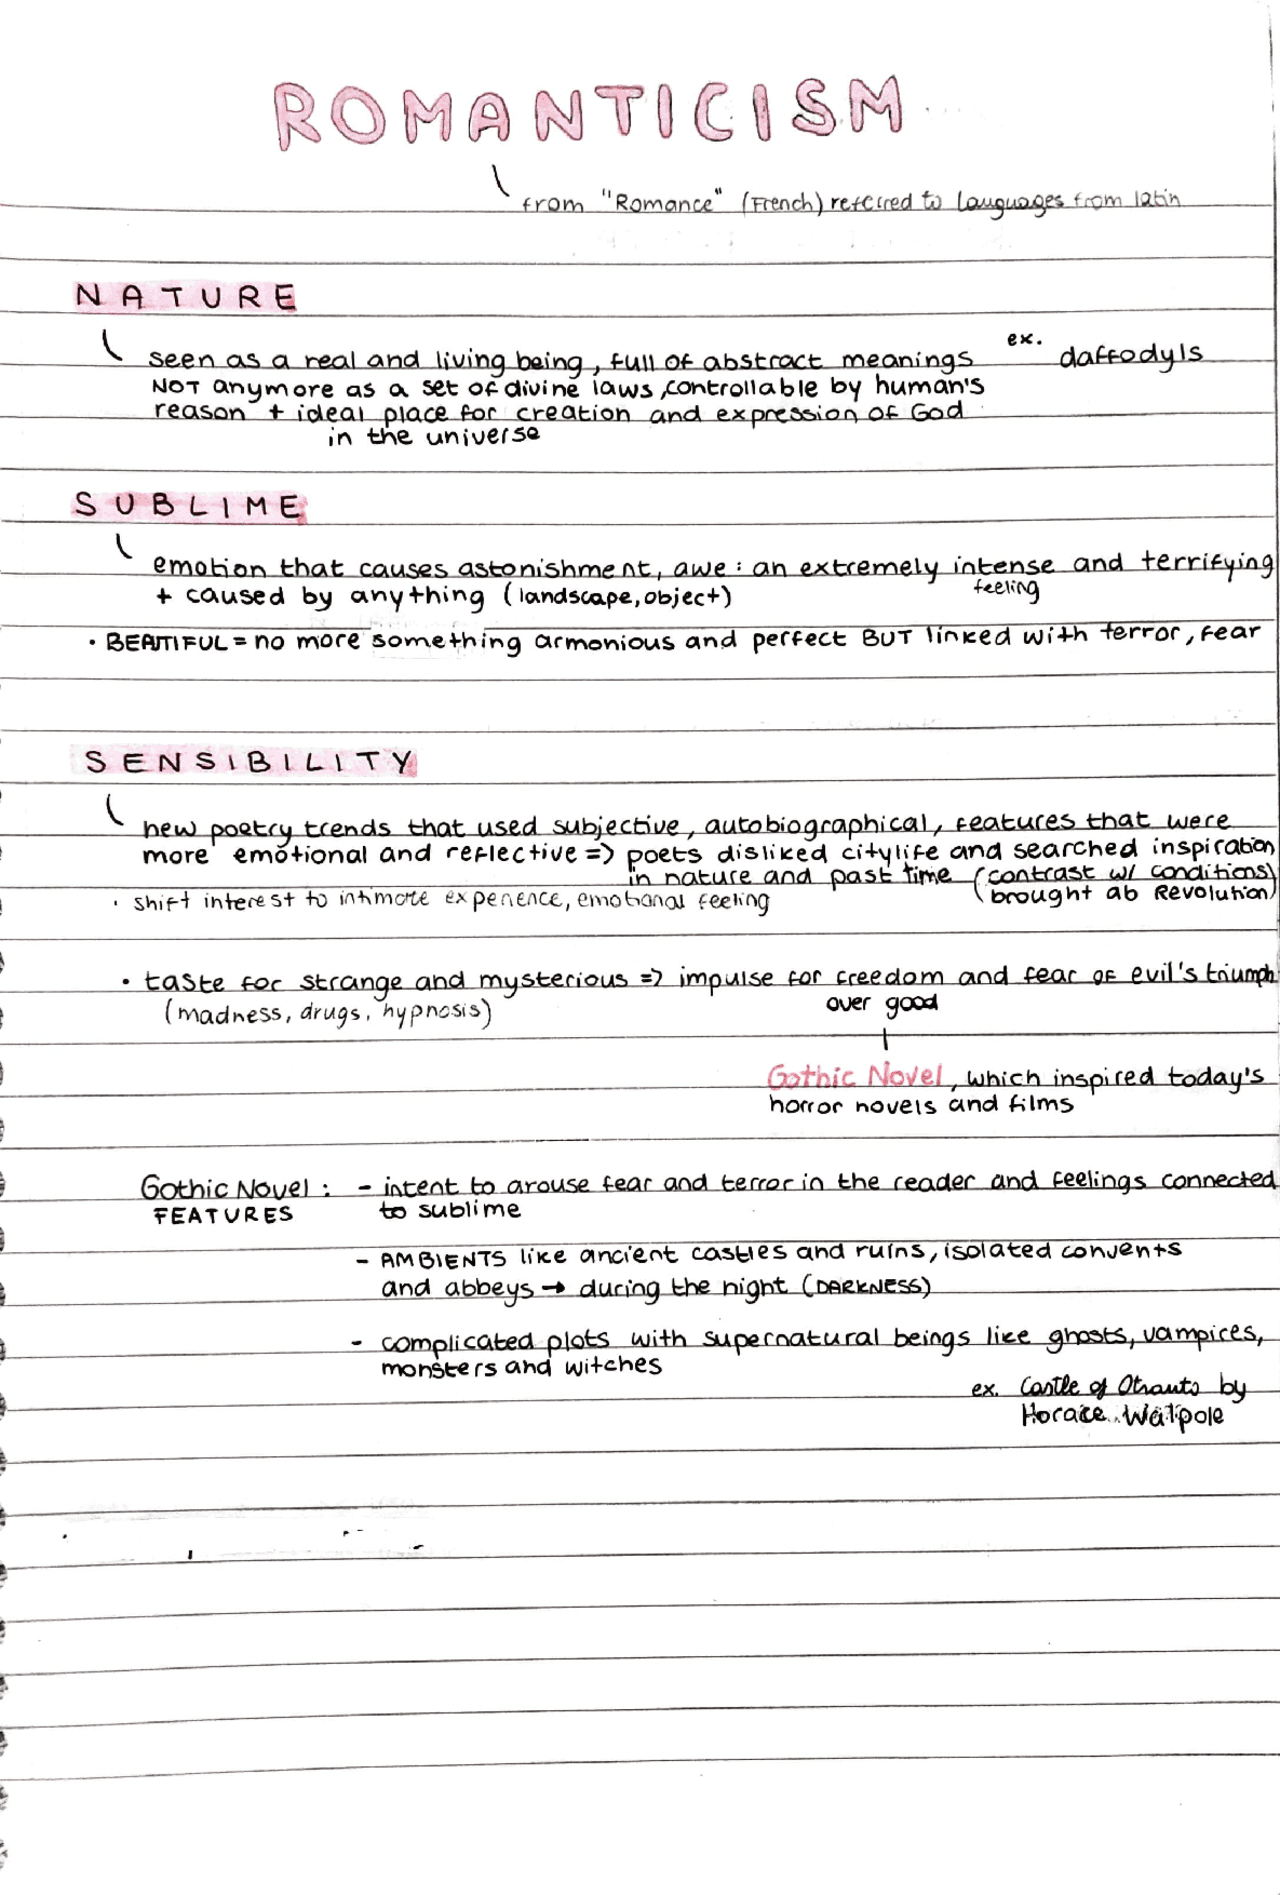 ROMANTICISM
from "Romance" (French) referred to languages from latin
NATURE
seen as a real and living being, full of abstract meanings ex. daffodyls
NOT anymore as a set of divine laws, controllable by human's
reason + ideal place for creation and expression of God
in the universe
SUBLIME
emotion that causes astonishment, awe: an extremely intense and terrifying
feeling
+ caused by anything (landscape, object)
• BEAUTIFUL = no more something armonious and perfect BUT linked with terror, fear
SENSIBILITY
new poetry trends that used subjective, autobiographical, features that were
more emotional and reflective => poets disliked citylife and searched inspiration
in nature and past time (contrast w/ conditions
brought ab Revolution)
• shift interest to intimate experience, emotional feeling
• taste for strange and mysterious => impulse for freedom and fear of evil's triumph
over good
(madness, drugs, hypnosis)
Gothic Novel, which inspired today's
horror novels and films
Gothic Novel: - intent to arouse fear and terror in the reader and feelings connected
FEATURES to sublime
- AMBIENTS like ancient castles and ruins, isolated convents
and abbeys → during the night (DARKNESS)
- complicated plots with supernatural beings like ghosts, vampires,
monsters and witches
ex. Castle of Otranto by
Horace Walpole